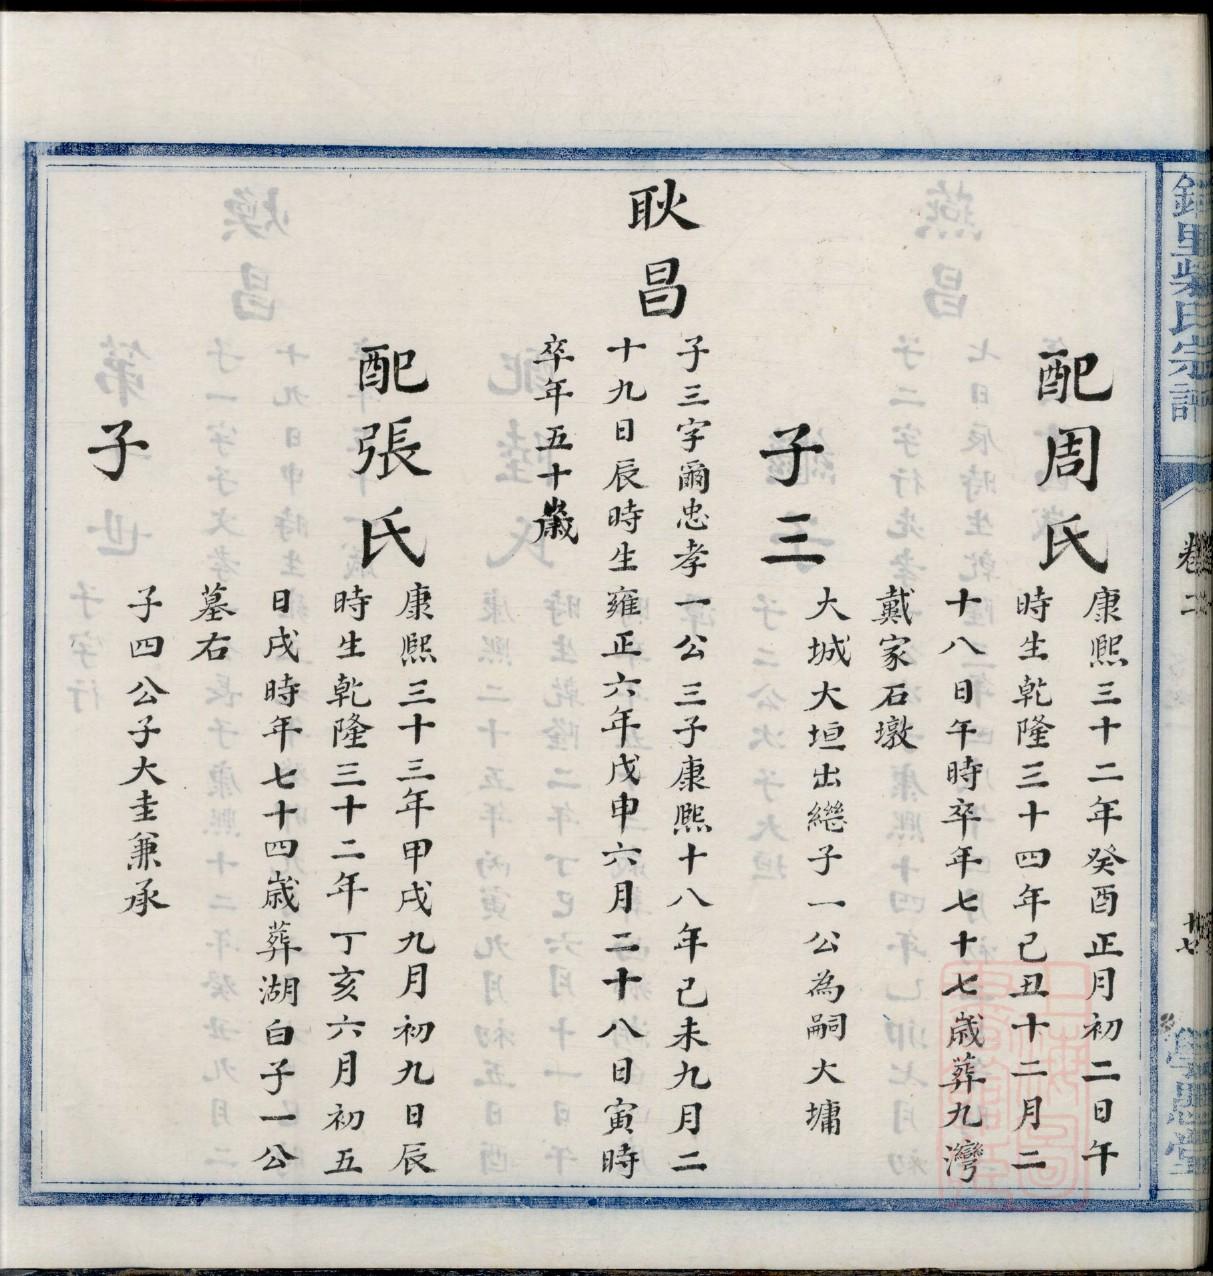 配周氏
康熙三十二年癸酉正月初二日午
時生乾隆三十四年己丑十二月二
十八日午時卒年七十七歲葬九灣
戴家石墩
子三
大城大垣出繼子一公為嗣大墉
耿昌
子三字爾忠孝一公三子康熙十八年己未九月二
十九日辰時生雍正六年戊申六月二十八日寅時
卒年五十歲
配張氏
康熙三十三年甲戌九月初九日辰
時生乾隆三十二年丁亥六月初五
日戌時年七十四歲葬湖白子一公
墓右
子
子四公子大圭兼承
卷二
十七